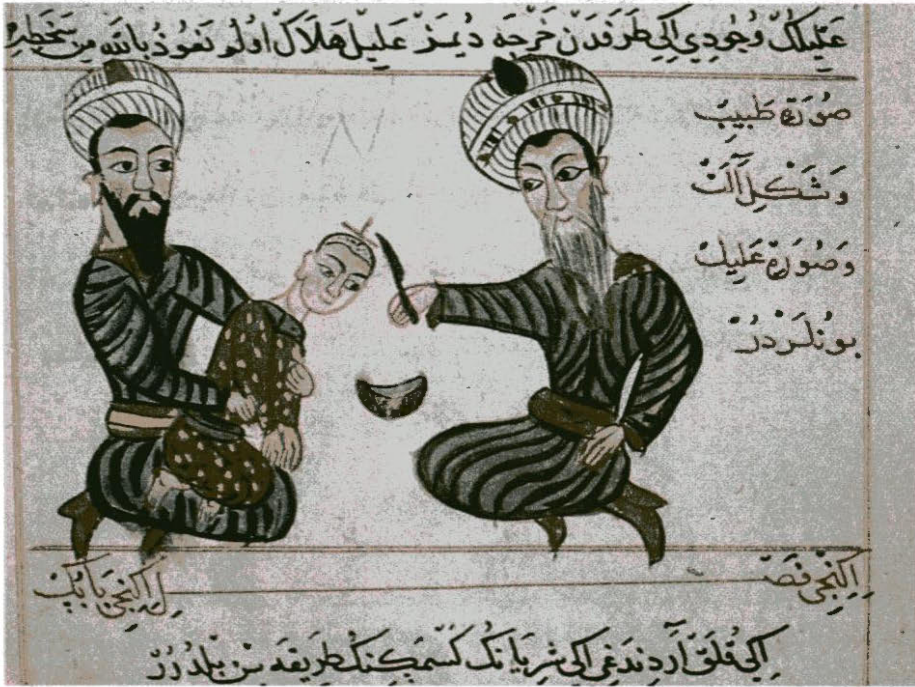 عليلك وجودي ايكى طرفدن خرجه ديمز عليل هلاك اولو نعوذ بالله من سخطه
صورة طبيب
و شكل آلت
وصورة عليل
بونلردر
ايكنجى فصل
ايكنجى بابك
ايكى قولاق آردندغى ايكى شريانك كسمكنك طريقه سن بلدرر